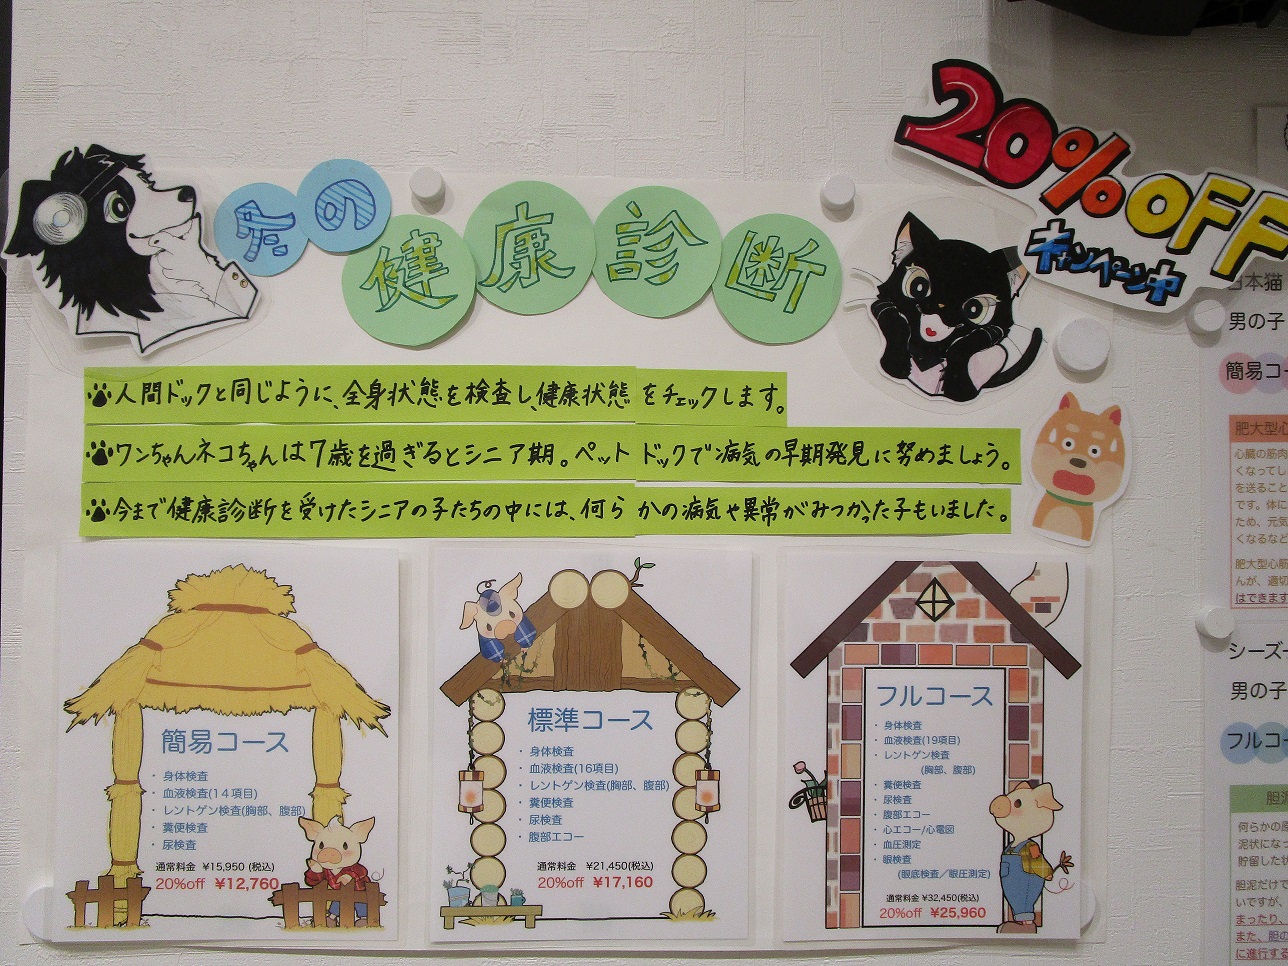 冬の
健康診断
20%OFF
キャンペーン中
人間ドックと同じように、全身状態を検査し、健康状態をチェックします。
ワンちゃんネコちゃんは7歳を過ぎるとシニア期。ペットドックで病気の早期発見に努めましょう。
今まで健康診断を受けたシニアの子たちの中には、何らかの病気や異常がみつかった子もいました。
簡易コース
・身体検査
・血液検査(14項目)
・レントゲン検査(胸部、腹部)
・糞便検査
・尿検査
通常料金 ¥15,950 (税込)
20%off ¥12,760
標準コース
・身体検査
・血液検査(16項目)
・レントゲン検査(胸部、腹部)
・糞便検査
・尿検査
・腹部エコー
通常料金 ¥21,450(税込)
20%off ¥17,160
フルコース
・身体検査
・血液検査(19項目)
・レントゲン検査
(胸部、腹部)
・糞便検査
・尿検査
・腹部エコー
・心エコー/心電図
・血圧測定
・眼検査
(眼底検査/眼圧測定)
通常料金 ¥32,450(税込)
20%off ¥25,960
日本猫
男の子
簡易コー
肥大型心
心臓の筋肉
くなってし
を送ること
です。体に
ため、元気
くなるなど
肥大型心筋
んが、適切
はできます
シーズー
男の子
フルコー
胆泥
何らかの原
泥状になっ
貯留した状
胆泥だけで
いですが、
まったり、
また、胆の
に進行する